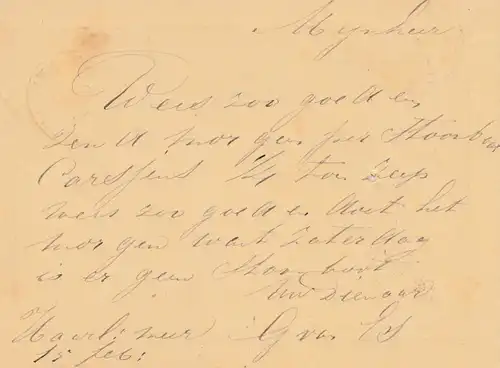 Mynheer
Wees zoo goed en
zend morgen per Stoomboot
Carsjens 1/4 ton zeep
wees zoo goed en doot het
morgen want Zaterdag
is er geen Stoomboot
Uw Dienaar
Haarl: meer G van Es
15 feb: